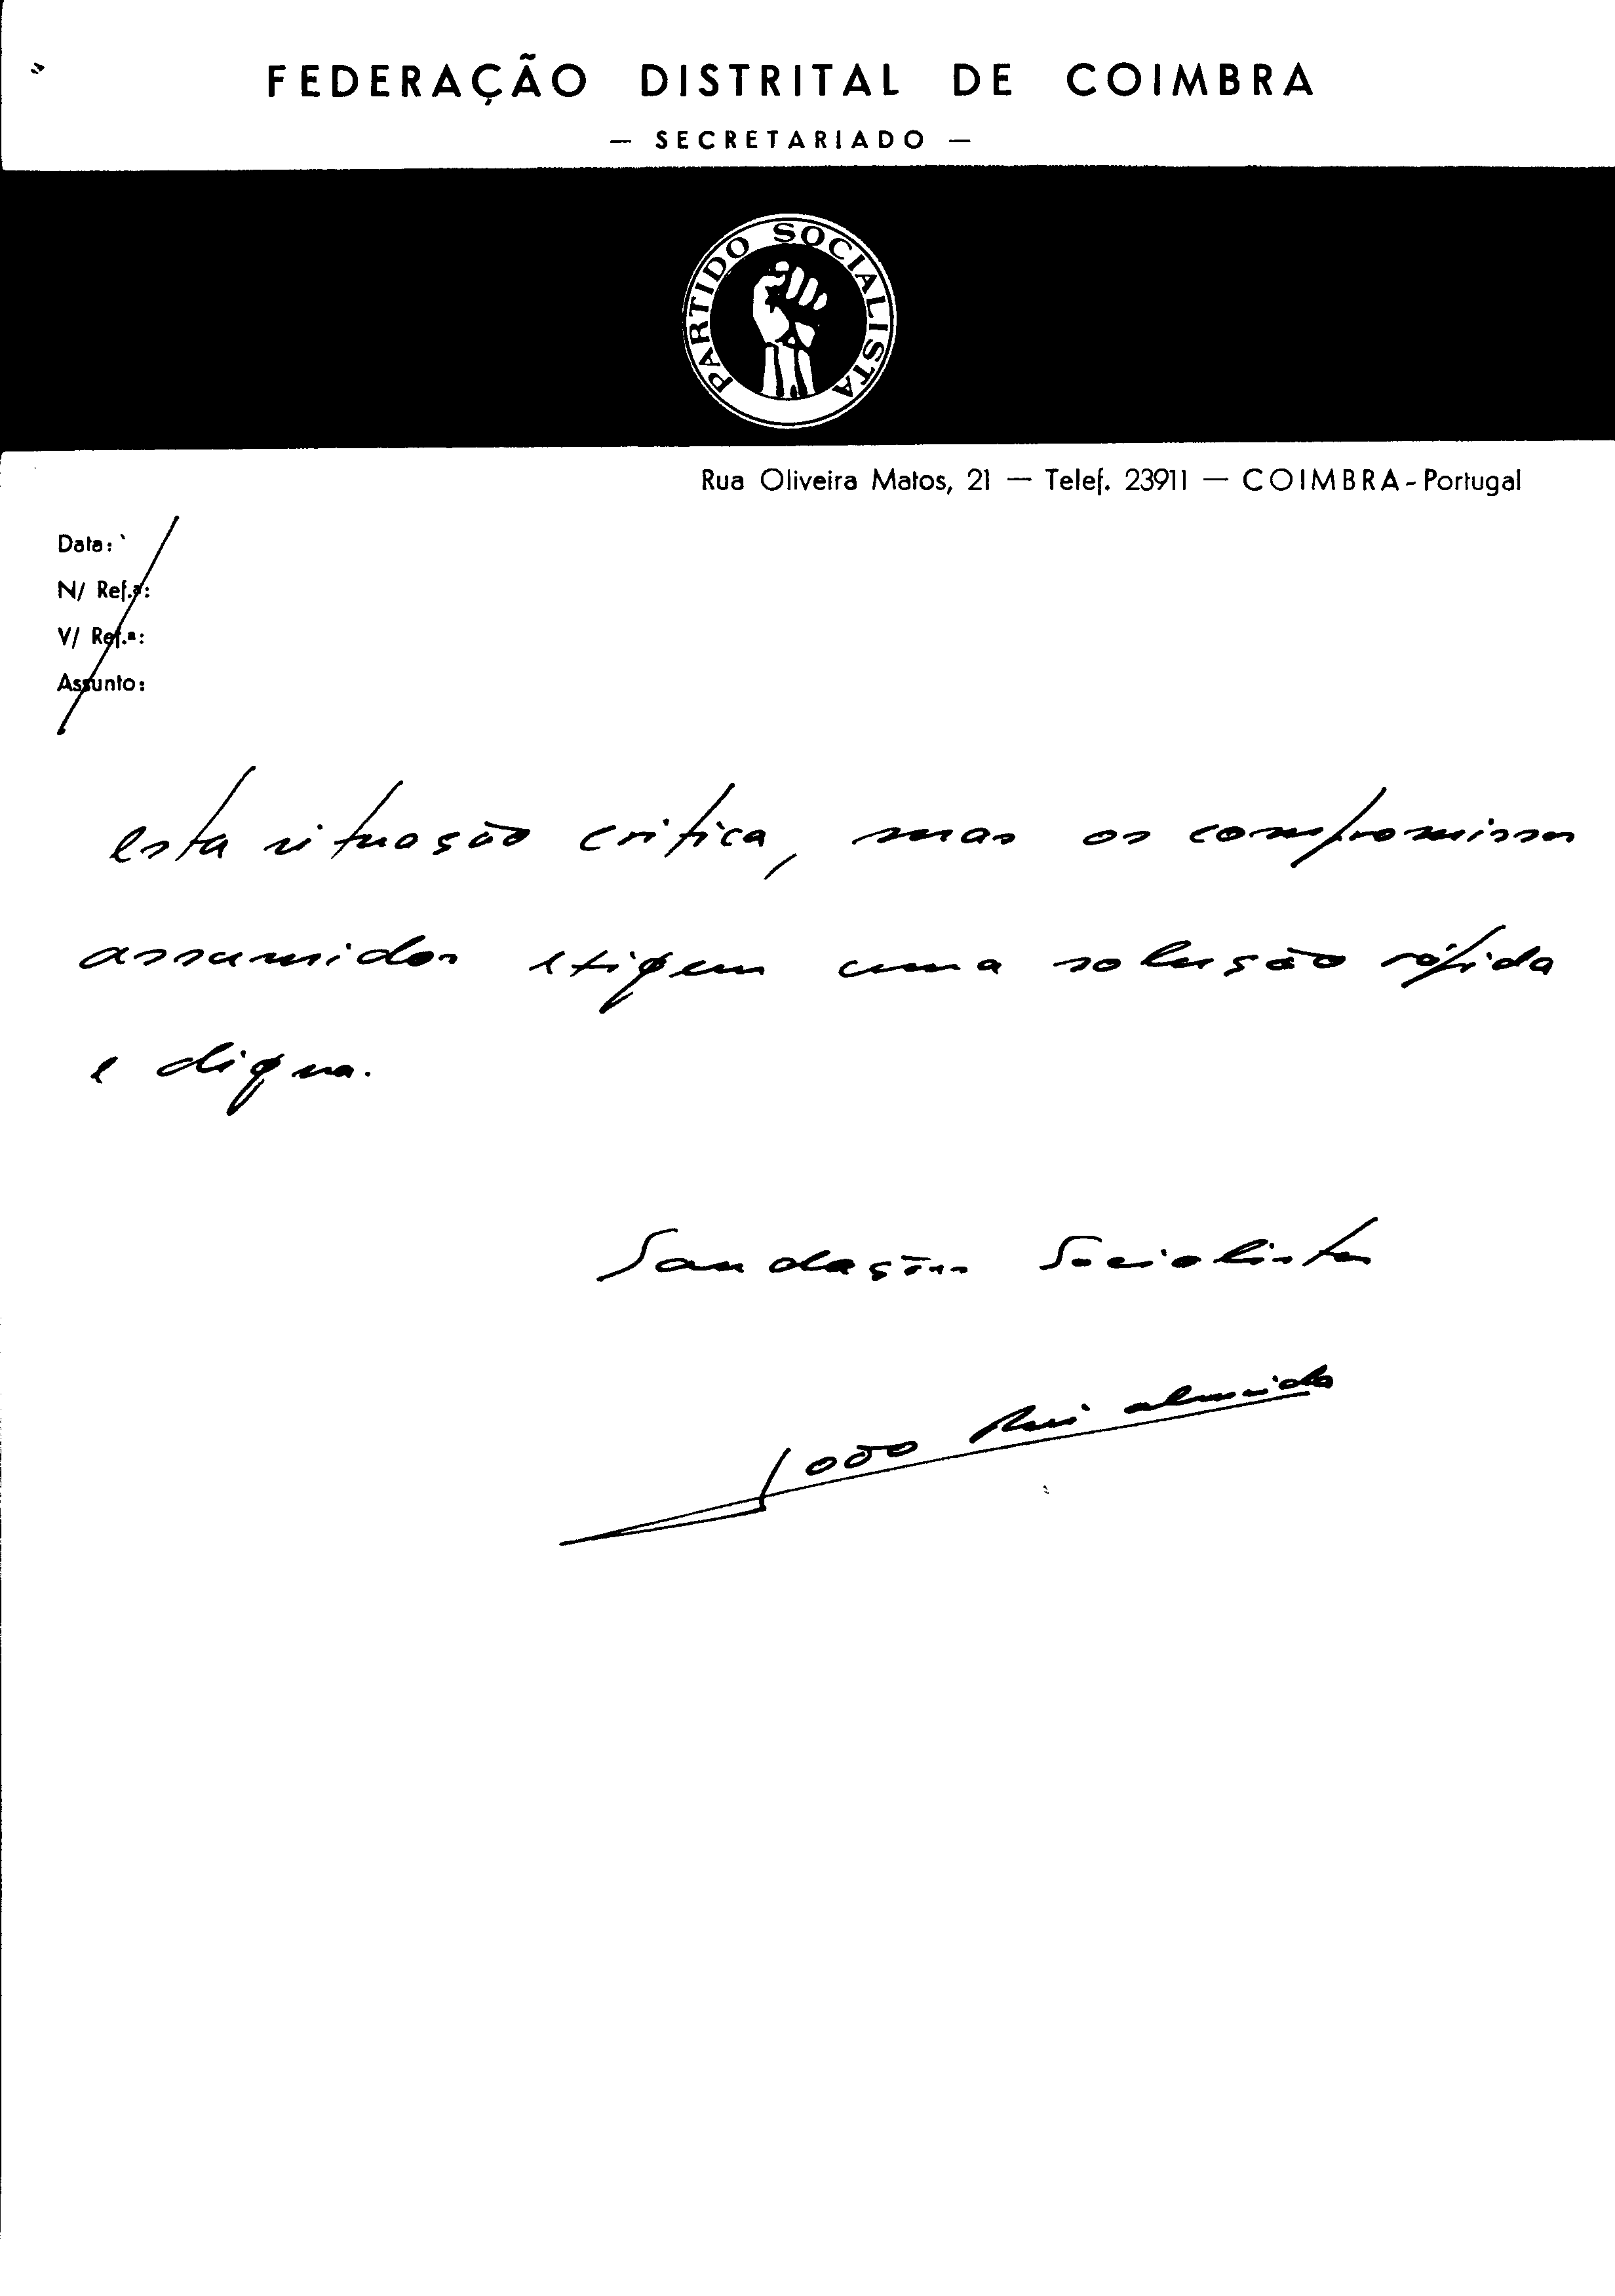 FEDERAÇÃO DISTRITAL DE COIMBRA
— SECRETARIADO —
PARTIDO SOCIALISTA
Rua Oliveira Matos, 21 — Telef. 23911 — COIMBRA - Portugal
Data:
N/ Ref.ª:
V/ Ref.ª:
Assunto:
esta situação critica, mas os compromissos
assumidos exigem uma solução rápida
e digna.
Saudações Socialistas
João Rui Almeida